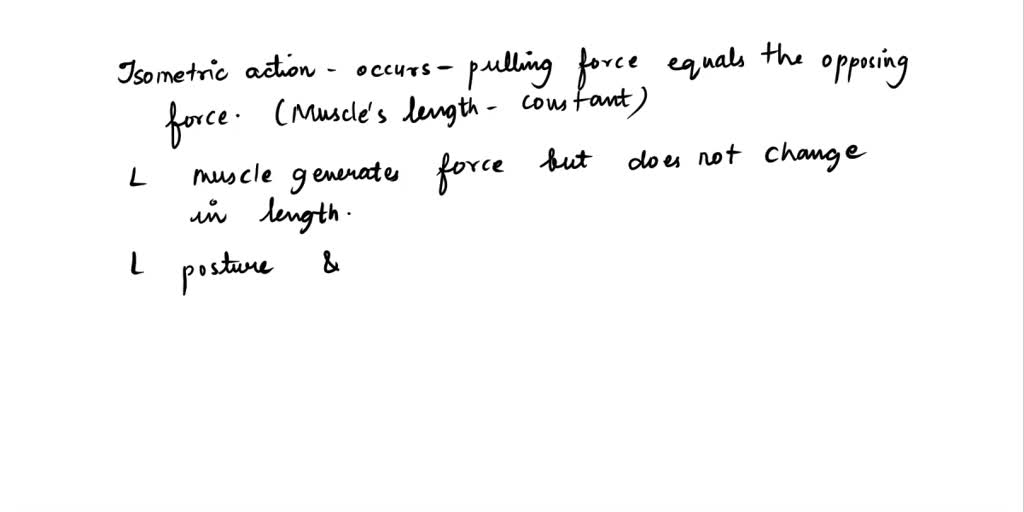 Isometric action - occurs - pulling force equals the opposing
force. (Muscle's length - constant)
L muscle generates force but does not change
in length.
L posture &